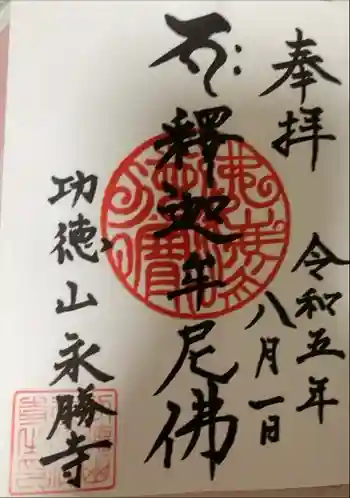 奉拝
令和五年
八月一日
釋迦牟尼佛
功徳山永勝寺